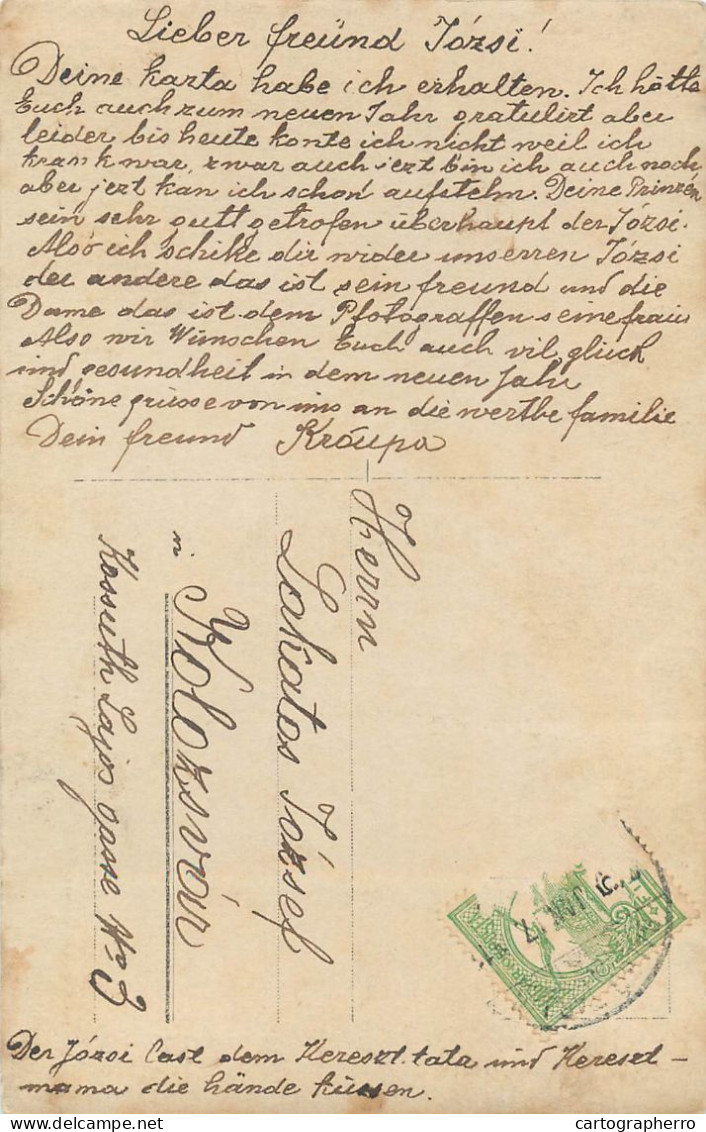 Lieber freünd Józsi!
Deine karta habe ich erhalten. Ich hätte
Euch auch zum neuen Jahr gratulirt aber
leider bis heute konte ich nicht weil ich
krank war, zwar auch jezt bin ich auch noch
aber jezt kan ich schon aufstehn. Deine Prinzen
sein sehr gutt getrofen überhaupt der Józsi.
Alsó ich schike dir wider unserren Józsi
der andere das ist sein freund und die
Dame das ist dem Pfotograffen seine frau
Also wir Wünschen Euch auch vil glück
und gesundheit in dem neuen Jahr
Schöne grüsse von uns an die werthe familie
Dein freund Kraupa
Herrn
Lakatos József
in Kolozsvár
Kossuth Lajos gasse No 3
Der Józsi last dem Kereszt tata und Kereszt-
mama die hände küssen.
cartographerro